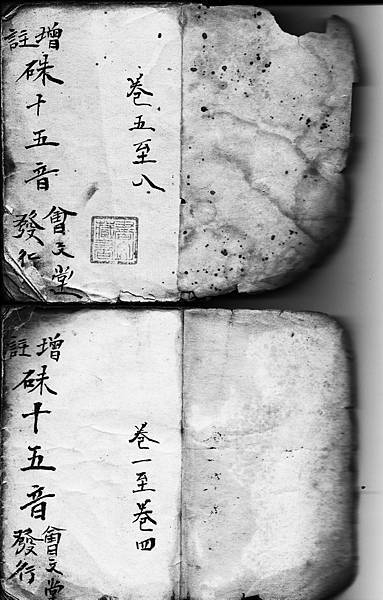 卷五至八
增註硃十五音
會文堂
發行
卷一至卷四
增註硃十五音
會文堂
發行